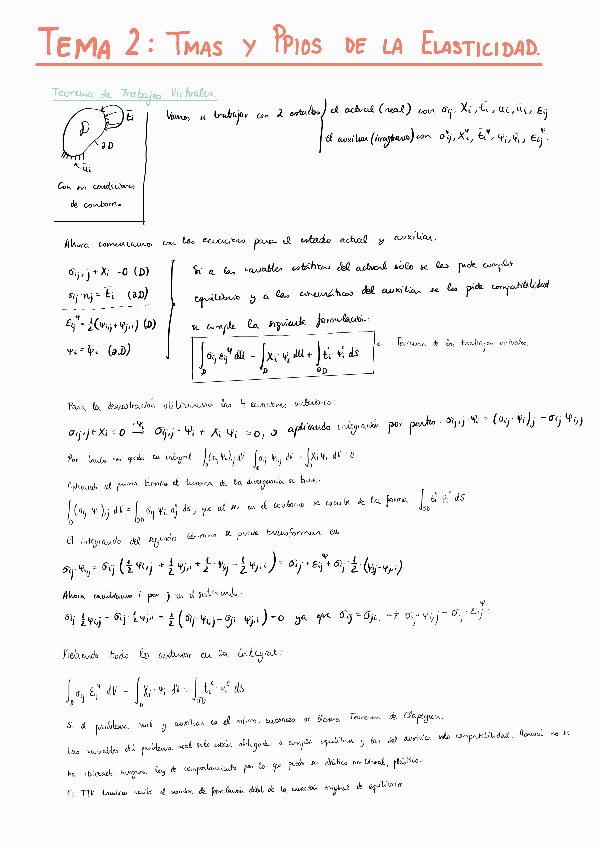 TEMA 2: TMAS Y PPIOS DE LA ELASTICIDAD.
Teorema de Trabajos Virtuales.
Vamos a trabajar con 2 estados el actual (real) con σij, Xi, t̄i, ui, ūi, εij
el auxiliar (imaginario) con
D
t̄i
∂D
ūi
Con sus condiciones
de contorno.
Ahora comenzamos con las ecuaciones para el estado actual y auxiliar.
σij,j + Xi = 0 (D)
σij·nj = t̄i (∂D)
εij^ψ = ½(ψi,j + ψj,i) (D)
(∂D)
Si a las variables estáticas del actual solo se les pide cumplir
equilibrio y a las cinemáticas del auxiliar se les pide compatibilidad
se cumple la siguiente formulación:
Teorema de los trabajos virtuales.
Para la demostración utilizaremos las 4 ecuaciones anteriores:
σij,j + Xi = 0 → σij,j·ψi + Xi·ψi = 0, y aplicando integración por partes: σij,j·ψi = (σij·ψi),j − σij ψi,j
Por tanto nos queda la integral ∫D (σij ψi),j dV − ∫D σij ψi,j dV + ∫D Xi ψi dV = 0
Aplicando al primer término el teorema de la divergencia se tiene:
∫D (σij ψi),j dV = ∫∂D σij ψi nj dS, que al ser en el contorno se escribe de la forma
El integrando del segundo término se puede transformar en
σij·ψi,j = σij (½ ψi,j + ½ ψj,i + ½·ψi,j − ½ ψj,i) = σij·εij^ψ + σij·½·(ψi,j − ψj,i)
Ahora cambiamos i por j en el
σij ½ ψi,j − σij·½ ψj,i = ½ (σij·ψi,j − σji ψi,j) = 0 ya que σij = σji. → σij·ψi,j = σij·εij^ψ
Metiendo todo lo anterior en la integral:
Si el problema real y auxiliar es el mismo, entonces se llama Teorema de Clapeyron.
Las variables del problema real solo están obligadas a cumplir equilibrio y las del auxiliar solo compatibilidad. Además no se
ha utilizado ninguna ley de comportamiento por lo que puede ser elástico no lineal, plástico..
El TTV también recibe el nombre de formulación débil de la ecuación original de equilibrio